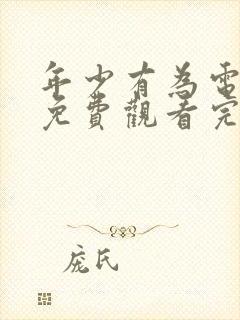 年少有為電
免費觀看完
庞氏